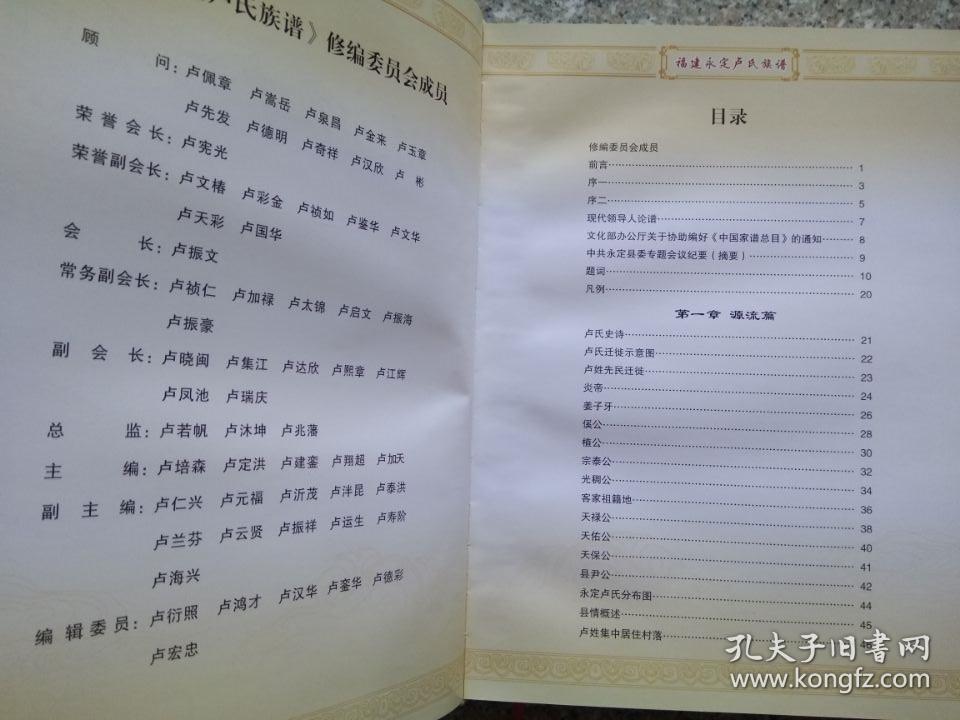 卢氏族谱》修编委员会成员
顾 问：卢佩章 卢嵩岳 卢泉昌 卢金来 卢玉章
卢先发 卢德明 卢奇祥 卢汉欣 卢彬
荣誉会长：卢宪光
荣誉副会长：卢文椿 卢彩金 卢祯如 卢鉴华 卢文华
卢天彩 卢国华
会 长：卢振文
常务副会长：卢祯仁 卢加禄 卢太锦 卢启文 卢振海
卢振豪
副 会 长：卢晓闽 卢集江 卢达欣 卢熙章 卢江辉
卢凤池 卢瑞庆
总 监：卢若帆 卢沐坤 卢兆藩
主 编：卢培森 卢定洪 卢建銮 卢翔超 卢加天
副 主 编：卢仁兴 卢元福 卢沂茂 卢泮昆 卢泰洪
卢兰芬 卢云贤 卢振祥 卢运生 卢寿阶
卢海兴
编辑委员：卢衍照 卢鸿才 卢汉华 卢銮华 卢德彩
卢宏忠
福建永定卢氏族谱
目录
修编委员会成员
前言 1
序一 3
序二 5
现代领导人论谱 7
文化部办公厅关于协助编好《中国家谱总目》的通知 8
中共永定县委专题会议纪要（摘要） 9
题词 10
凡例 20
第一章 源流篇
卢氏史诗 21
卢氏迁徙示意图 22
卢姓先民迁徙 23
炎帝 24
姜子牙 26
傒公 28
植公 30
宗泰公 32
光稠公 34
客家祖籍地 36
天禄公 38
天佑公 40
天保公 41
县尹公 42
永定卢氏分布图 44
县情概述 45
卢姓集中居住村落 46
孔夫子旧书网
www.kongfz.com